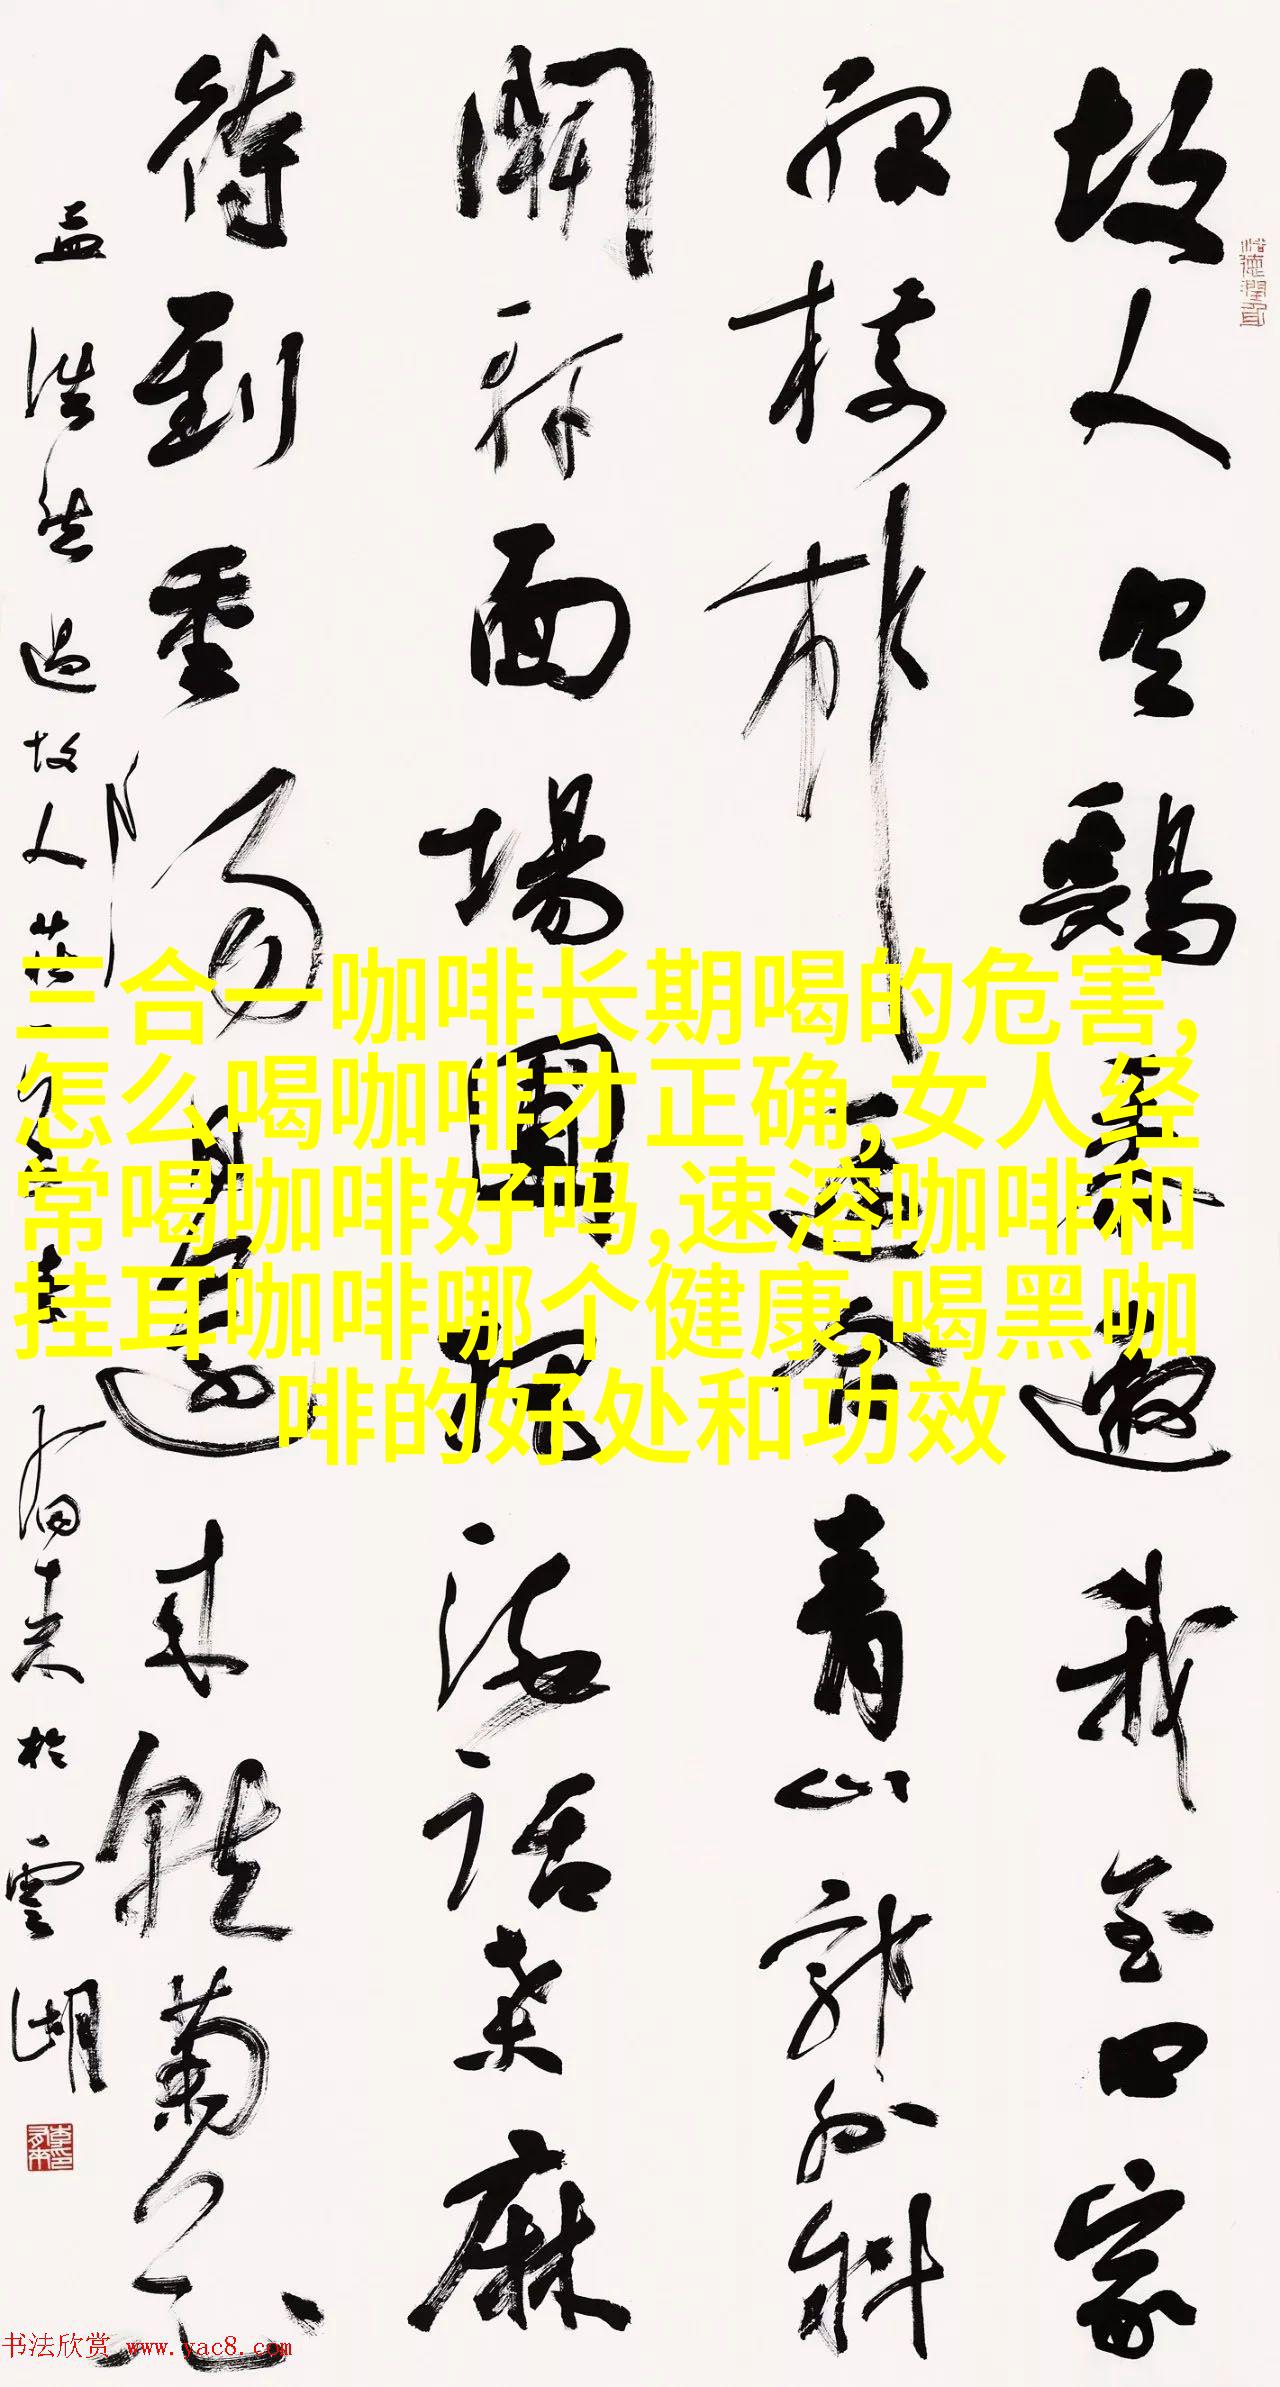 故人具鷄黍邀我至田家
緑樹村邊合青山郭外斜
開軒面場圃把酒話桑麻
待到重陽日還來就菊花
孟浩然過故人莊 有来於雲湖
三合一咖啡长期喝的危害,
怎么喝咖啡才正确,女人经
常喝咖啡好吗,速溶咖啡和
挂耳咖啡哪个健康,喝黑咖
啡的好处和功效
书法欣赏 www.yac8.com